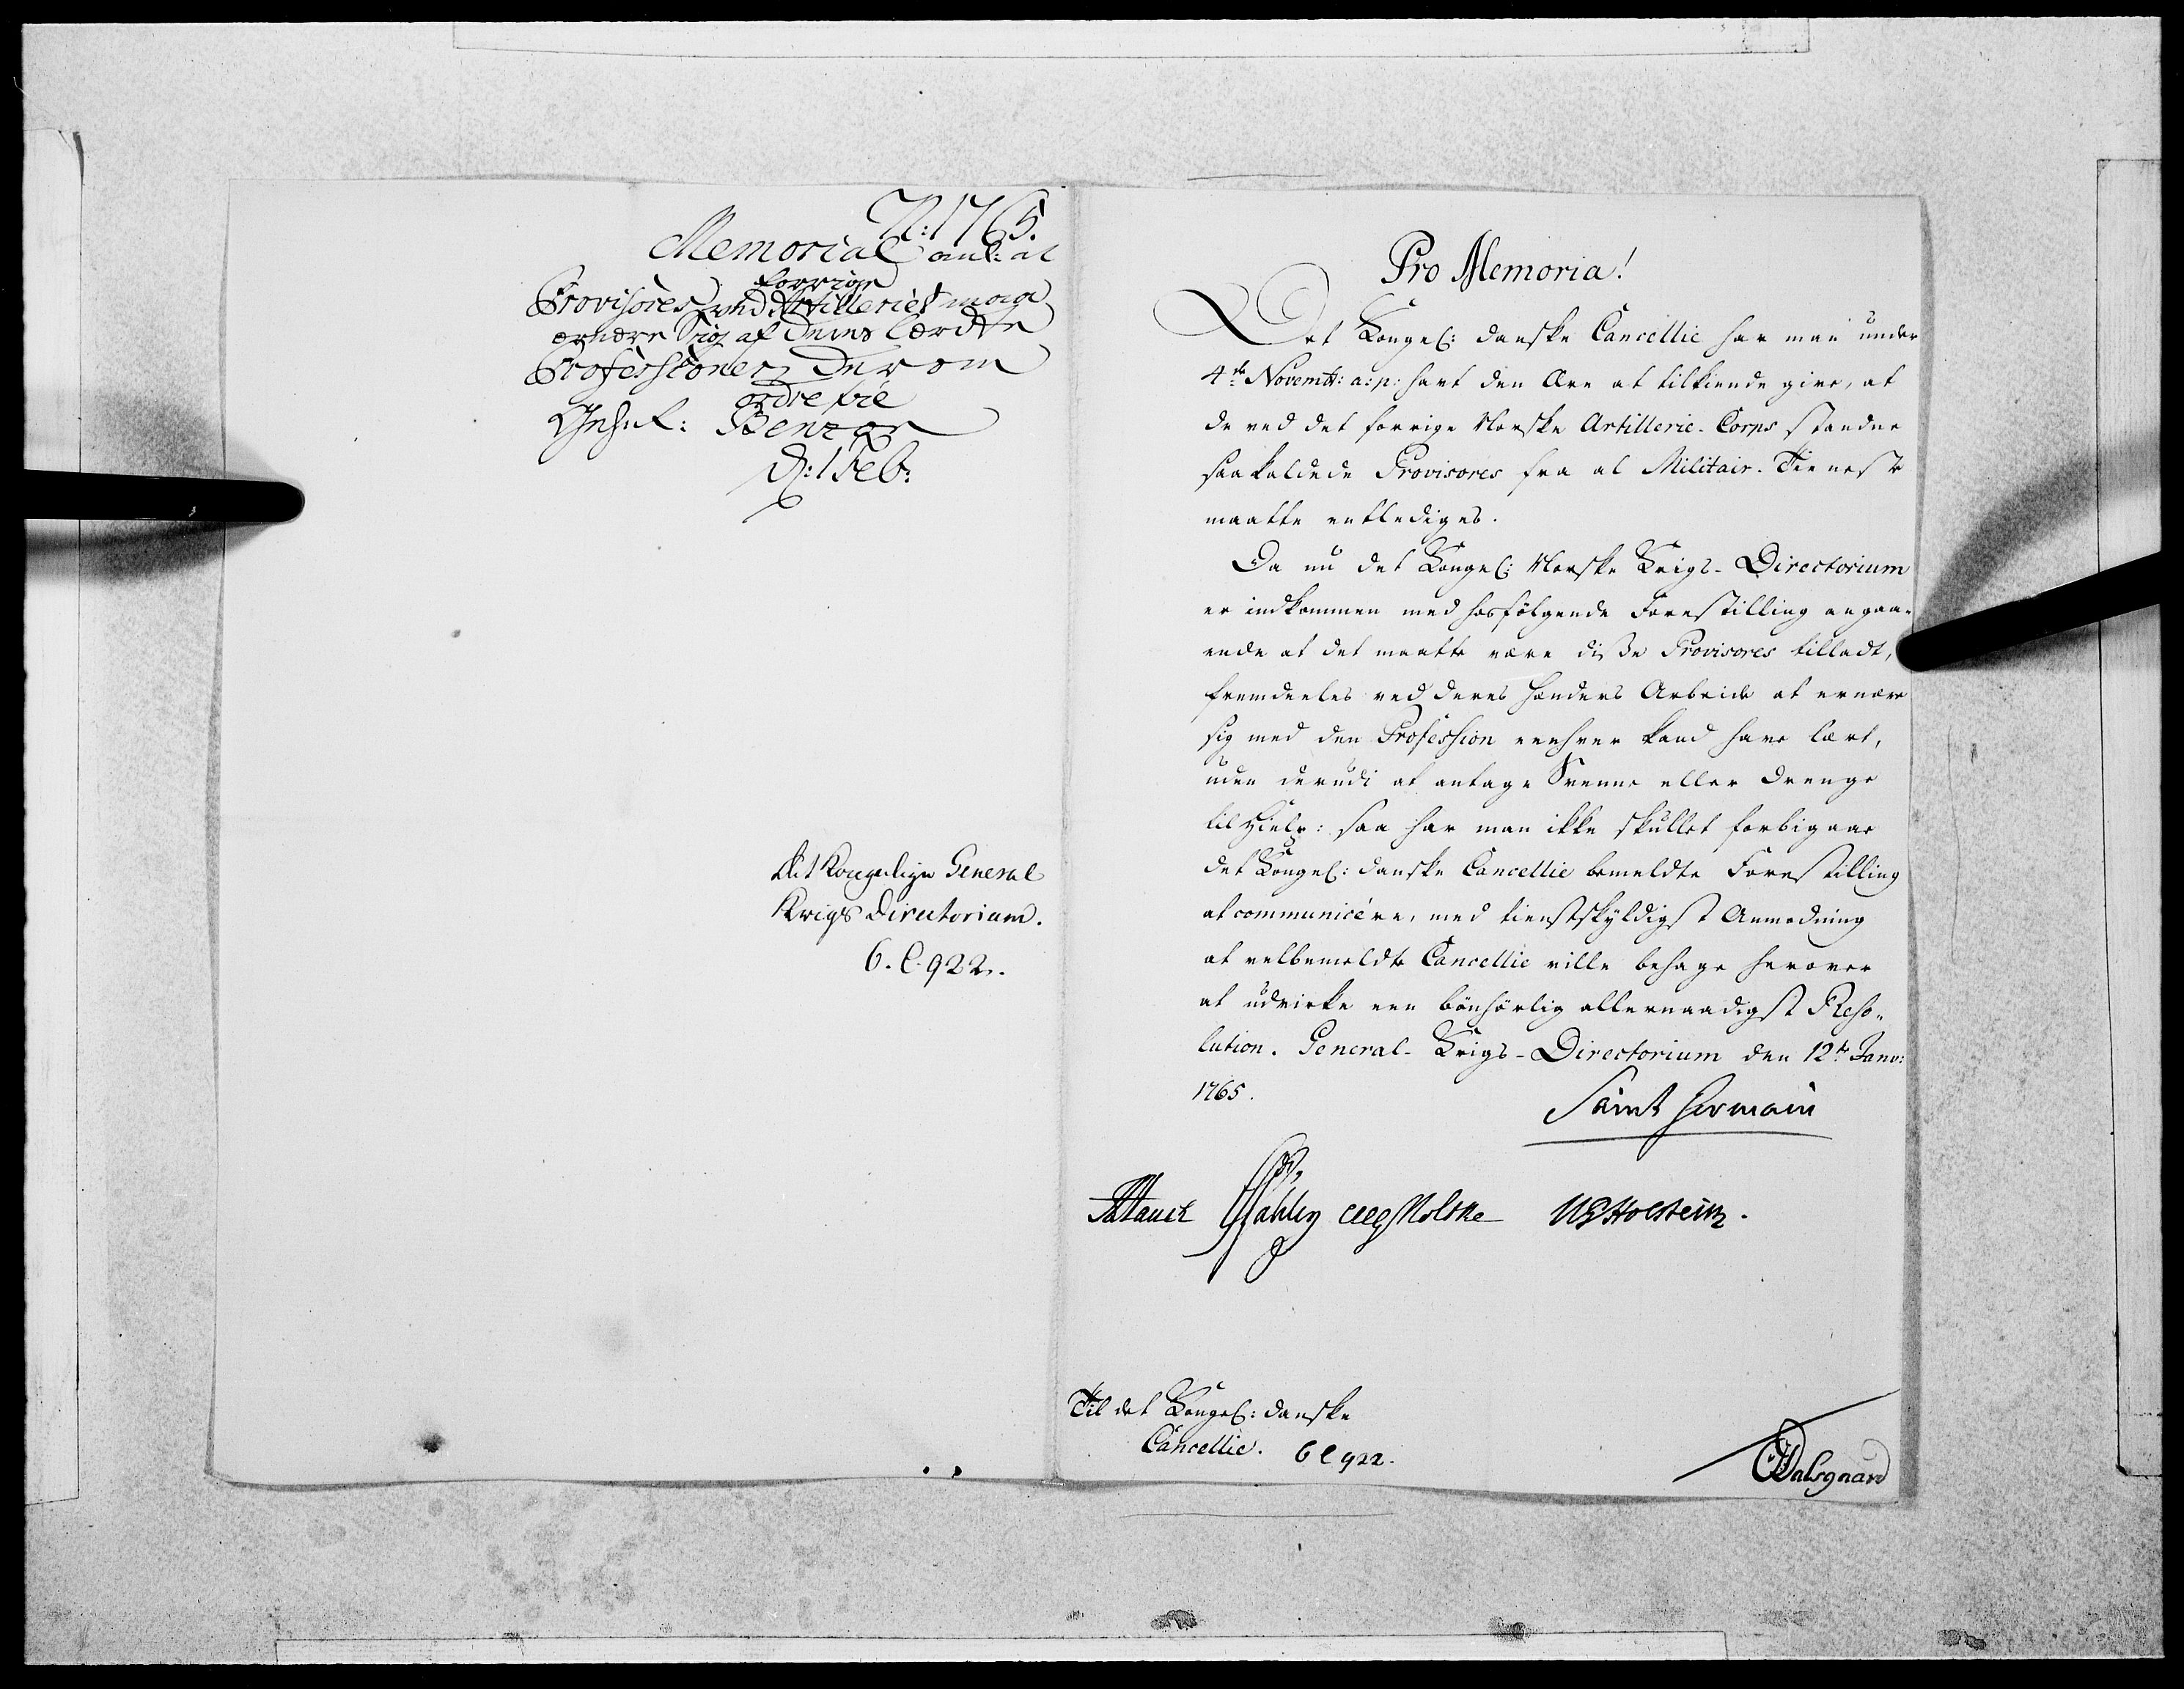 N: 1765.
Memorial anl: at
forrige
Provisores ved Artilleriet maa
ernære Sig af deres lærdte
Professioner, Derom
ordre fra
Benzon
D: 1 Feb:
Det Kongelige General
Krigs Directorium.
6. C. 922.
Pro Memoria!
Det Kongel: danske Cancellie har man under
4de Novembr: a: p: havt den Ære at tilkiende give, at
de ved det forrige Norske Artillerie-Corps staaende
saakaldede Provisores fra al Militair-Tieneste
maatte entlediges.
Da nu det Kongel: Norske Krigs-Directorium
er indkommen med hosfölgende Forestilling angaa-
ende at det maatte være disse Provisores tilladt,
fremdeeles ved deres Hænders Arbeide at ernære
sig med den Profession eenhver kand have lært,
uden derudi at antage Svenne eller Drenge
til Hielp: saa har man ikke skullet forbigaae
det Kongel: danske Cancellie bemeldte Forestilling
at communicére, med tienstskyldigst Anmodning
at velbemeldte Cancellie ville behage herover
at udvirke een bönhörlig allernaadigst Reso-
lution. General-Krigs-Directorium den 12te Janv:
1765.
Saint Germain
Moltke Holstein.
Til det Kongel: danske
Cancellie. 6 C 922.
Dalsgaard